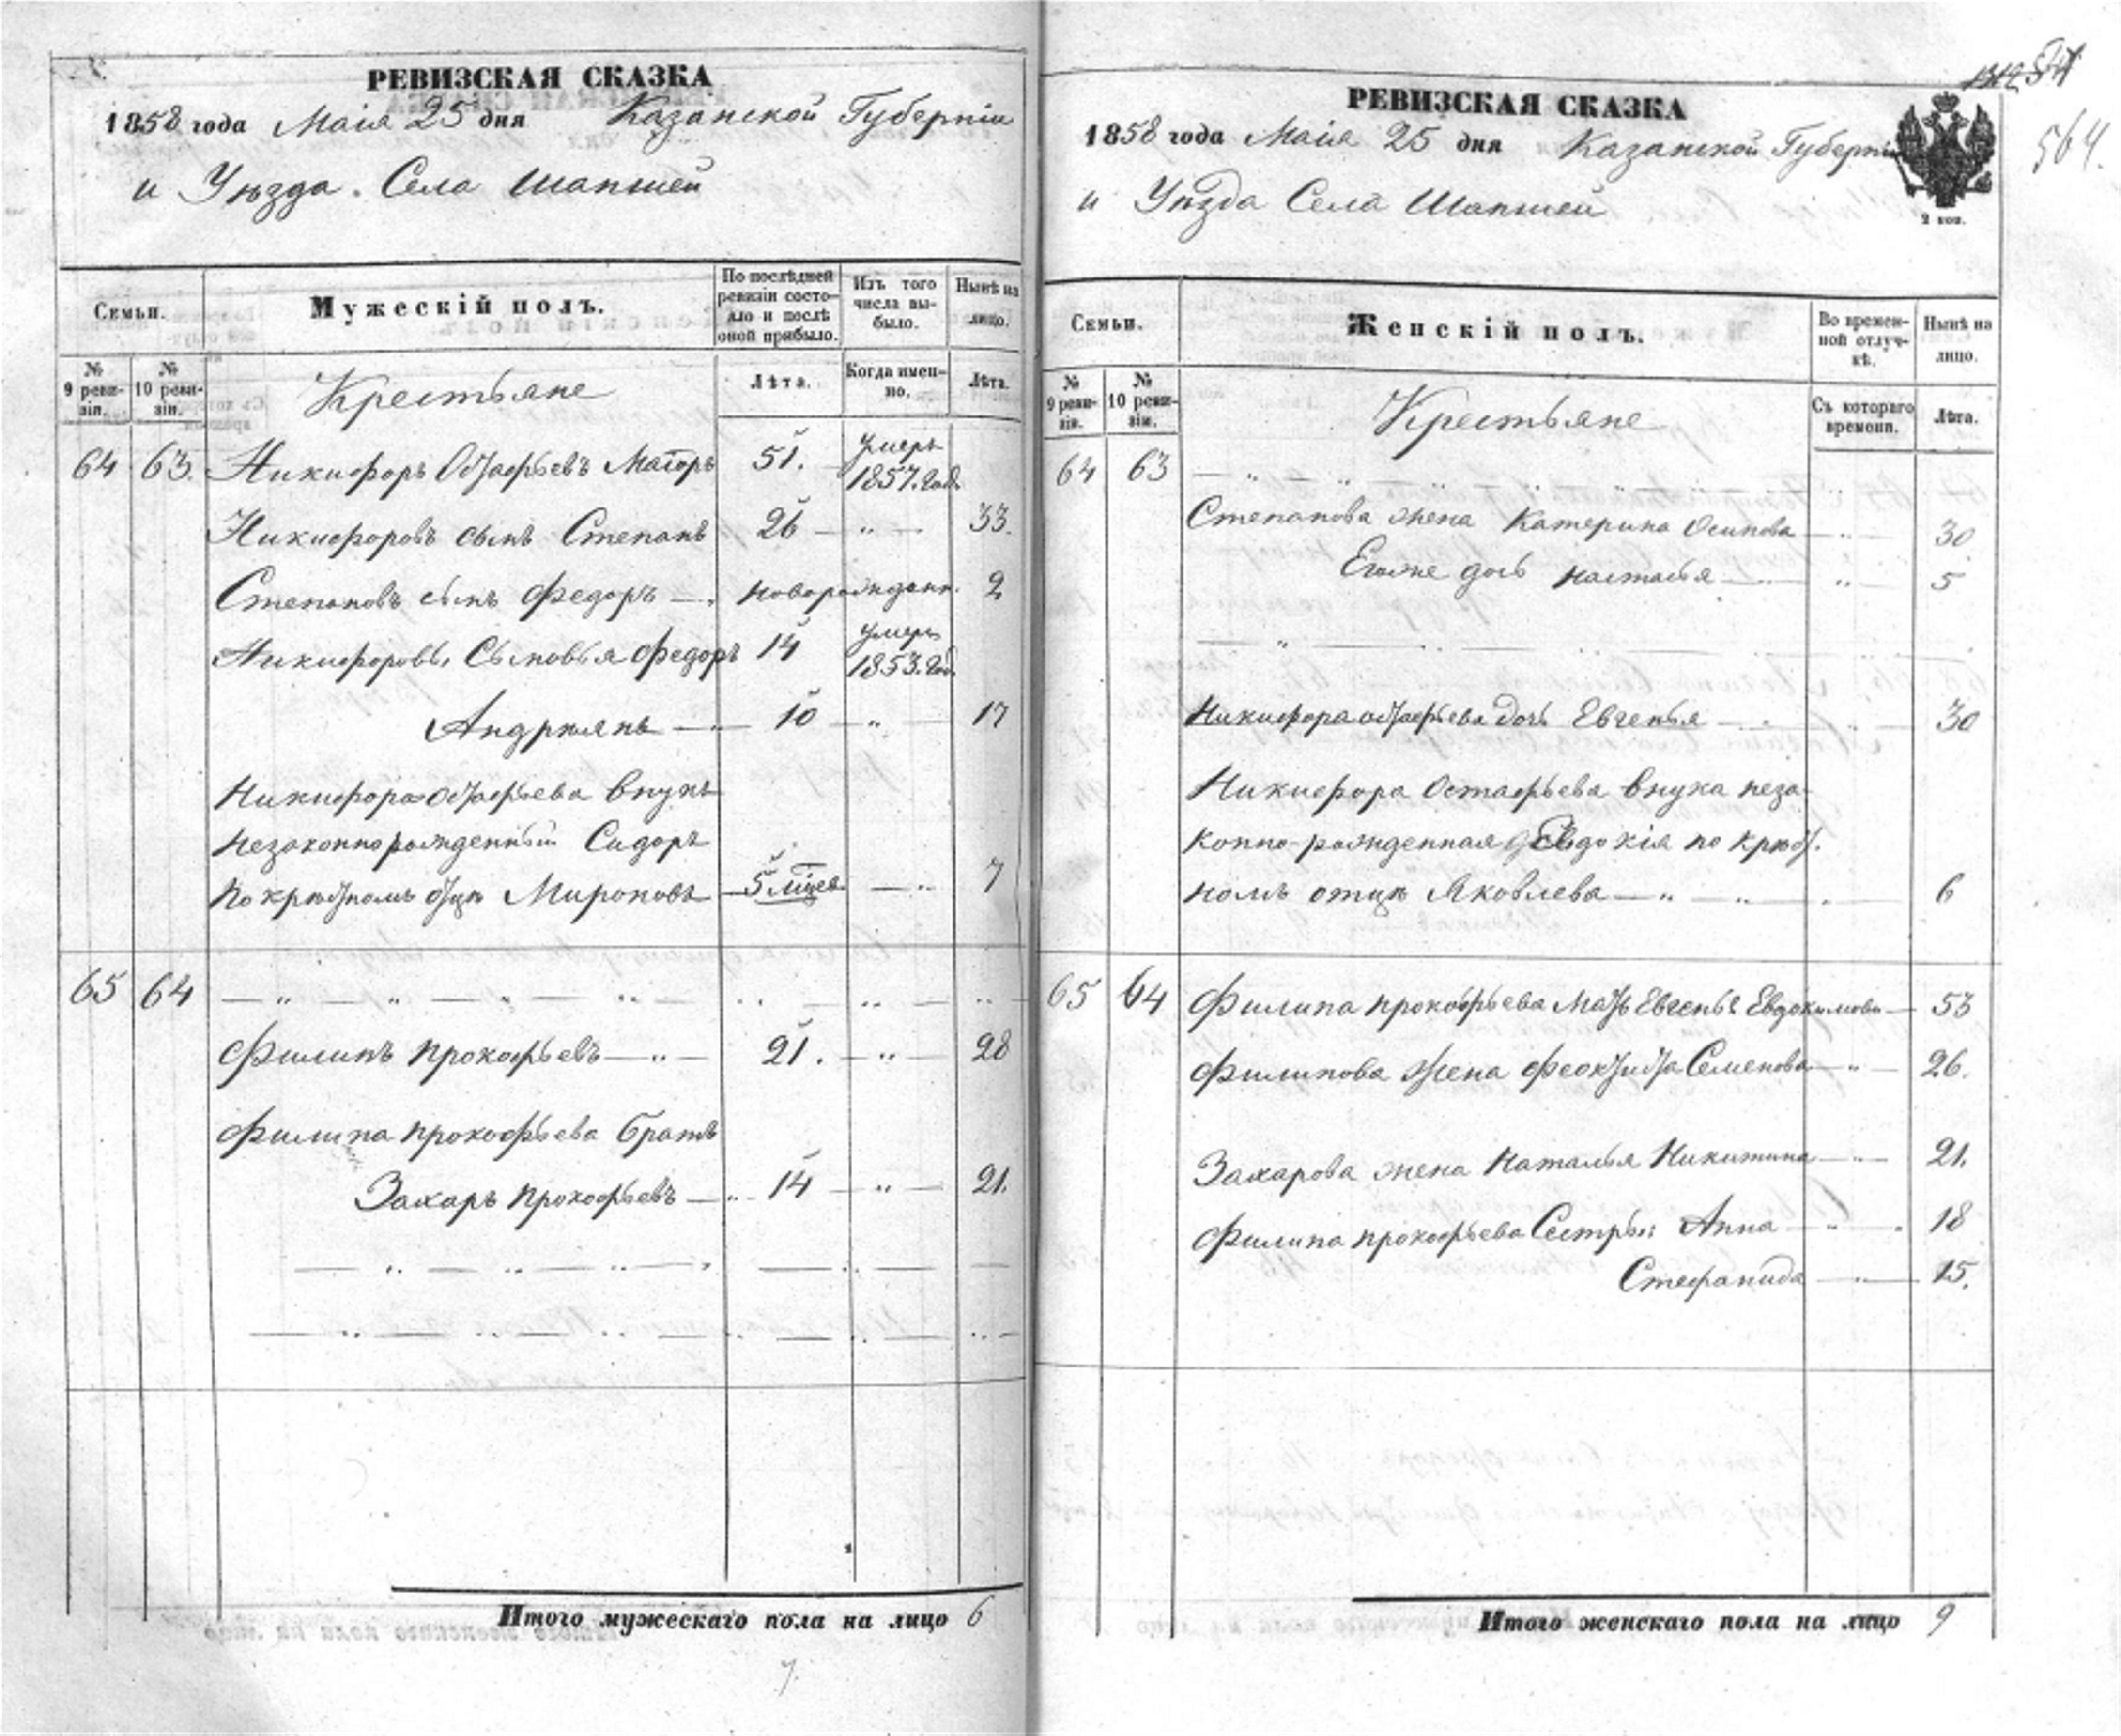 РЕВИЗСКАЯ СКАЗКА
1858 года Маія 25 дня Казанской Губерніи
и Уѣзда. Села Шапшей
Семьи.
Мужескій полъ.
По послѣдней ревизіи состояло и послѣ оной прибыло.
Изъ того числа выбыло.
Нынѣ на лицо.
№ 9 ревизіи.
№ 10 ревизіи.
Крестьяне
Лѣта.
Когда именно.
Лѣта.
64 63. Никифоръ Остафьевъ 51. умеръ 1857. год.
Никифоровъ сынъ Степанъ 26 — " — 33.
Степановъ сынъ Федоръ — новорожденн. 2
Никифоровы Сыновья Федоръ 14 умеръ 1853. год.
Андреянъ — 10 — " — 17
Никифора Остафьева внукъ
незаконнорожденный Сидоръ
по крѣстномъ отцѣ Мироновъ 5 мѣсе. — " 7
65 64 — " — " — " — " — " — " — "
Филипъ Прокофьевъ — " — 21. — " — 28
Филипа Прокофьева братъ
Захаръ Прокофьевъ — " — 14 — " — 21.
Итого мужескаго пола на лицо 6
7
РЕВИЗСКАЯ СКАЗКА
564.
1858 года Маія 25 дня Казанской Губерніи
и Уѣзда Села Шапшей
2 коп.
Семьи.
Женскій полъ.
Во временной отлучкѣ.
Нынѣ на лицо.
№ 9 ревизіи.
№ 10 ревизіи.
Крестьяне
Съ котораго времени.
Лѣта.
64 63 — " — " — "
Степанова жена Катерина Осипова — " — 30
Егоже дочь Настасья — " — 5
Никифора Остафьева дочь Евгенья — " — 30
Никифора Остафьева внука неза-
конно-рожденная Евдокія по крѣст.
номъ отцѣ Яковлева — " — " — 6
65 64 Филипа Прокофьева Мать Евгенья Евдокимова — 53
Филипова Жена Феоктиста Семенова — " — 26.
Захарова жена Наталья Никитина — " — 21.
Филипа Прокофьева Сестры: Анна — " — 18
Стефанида — " — 15.
Итого женскаго пола на лицо 9